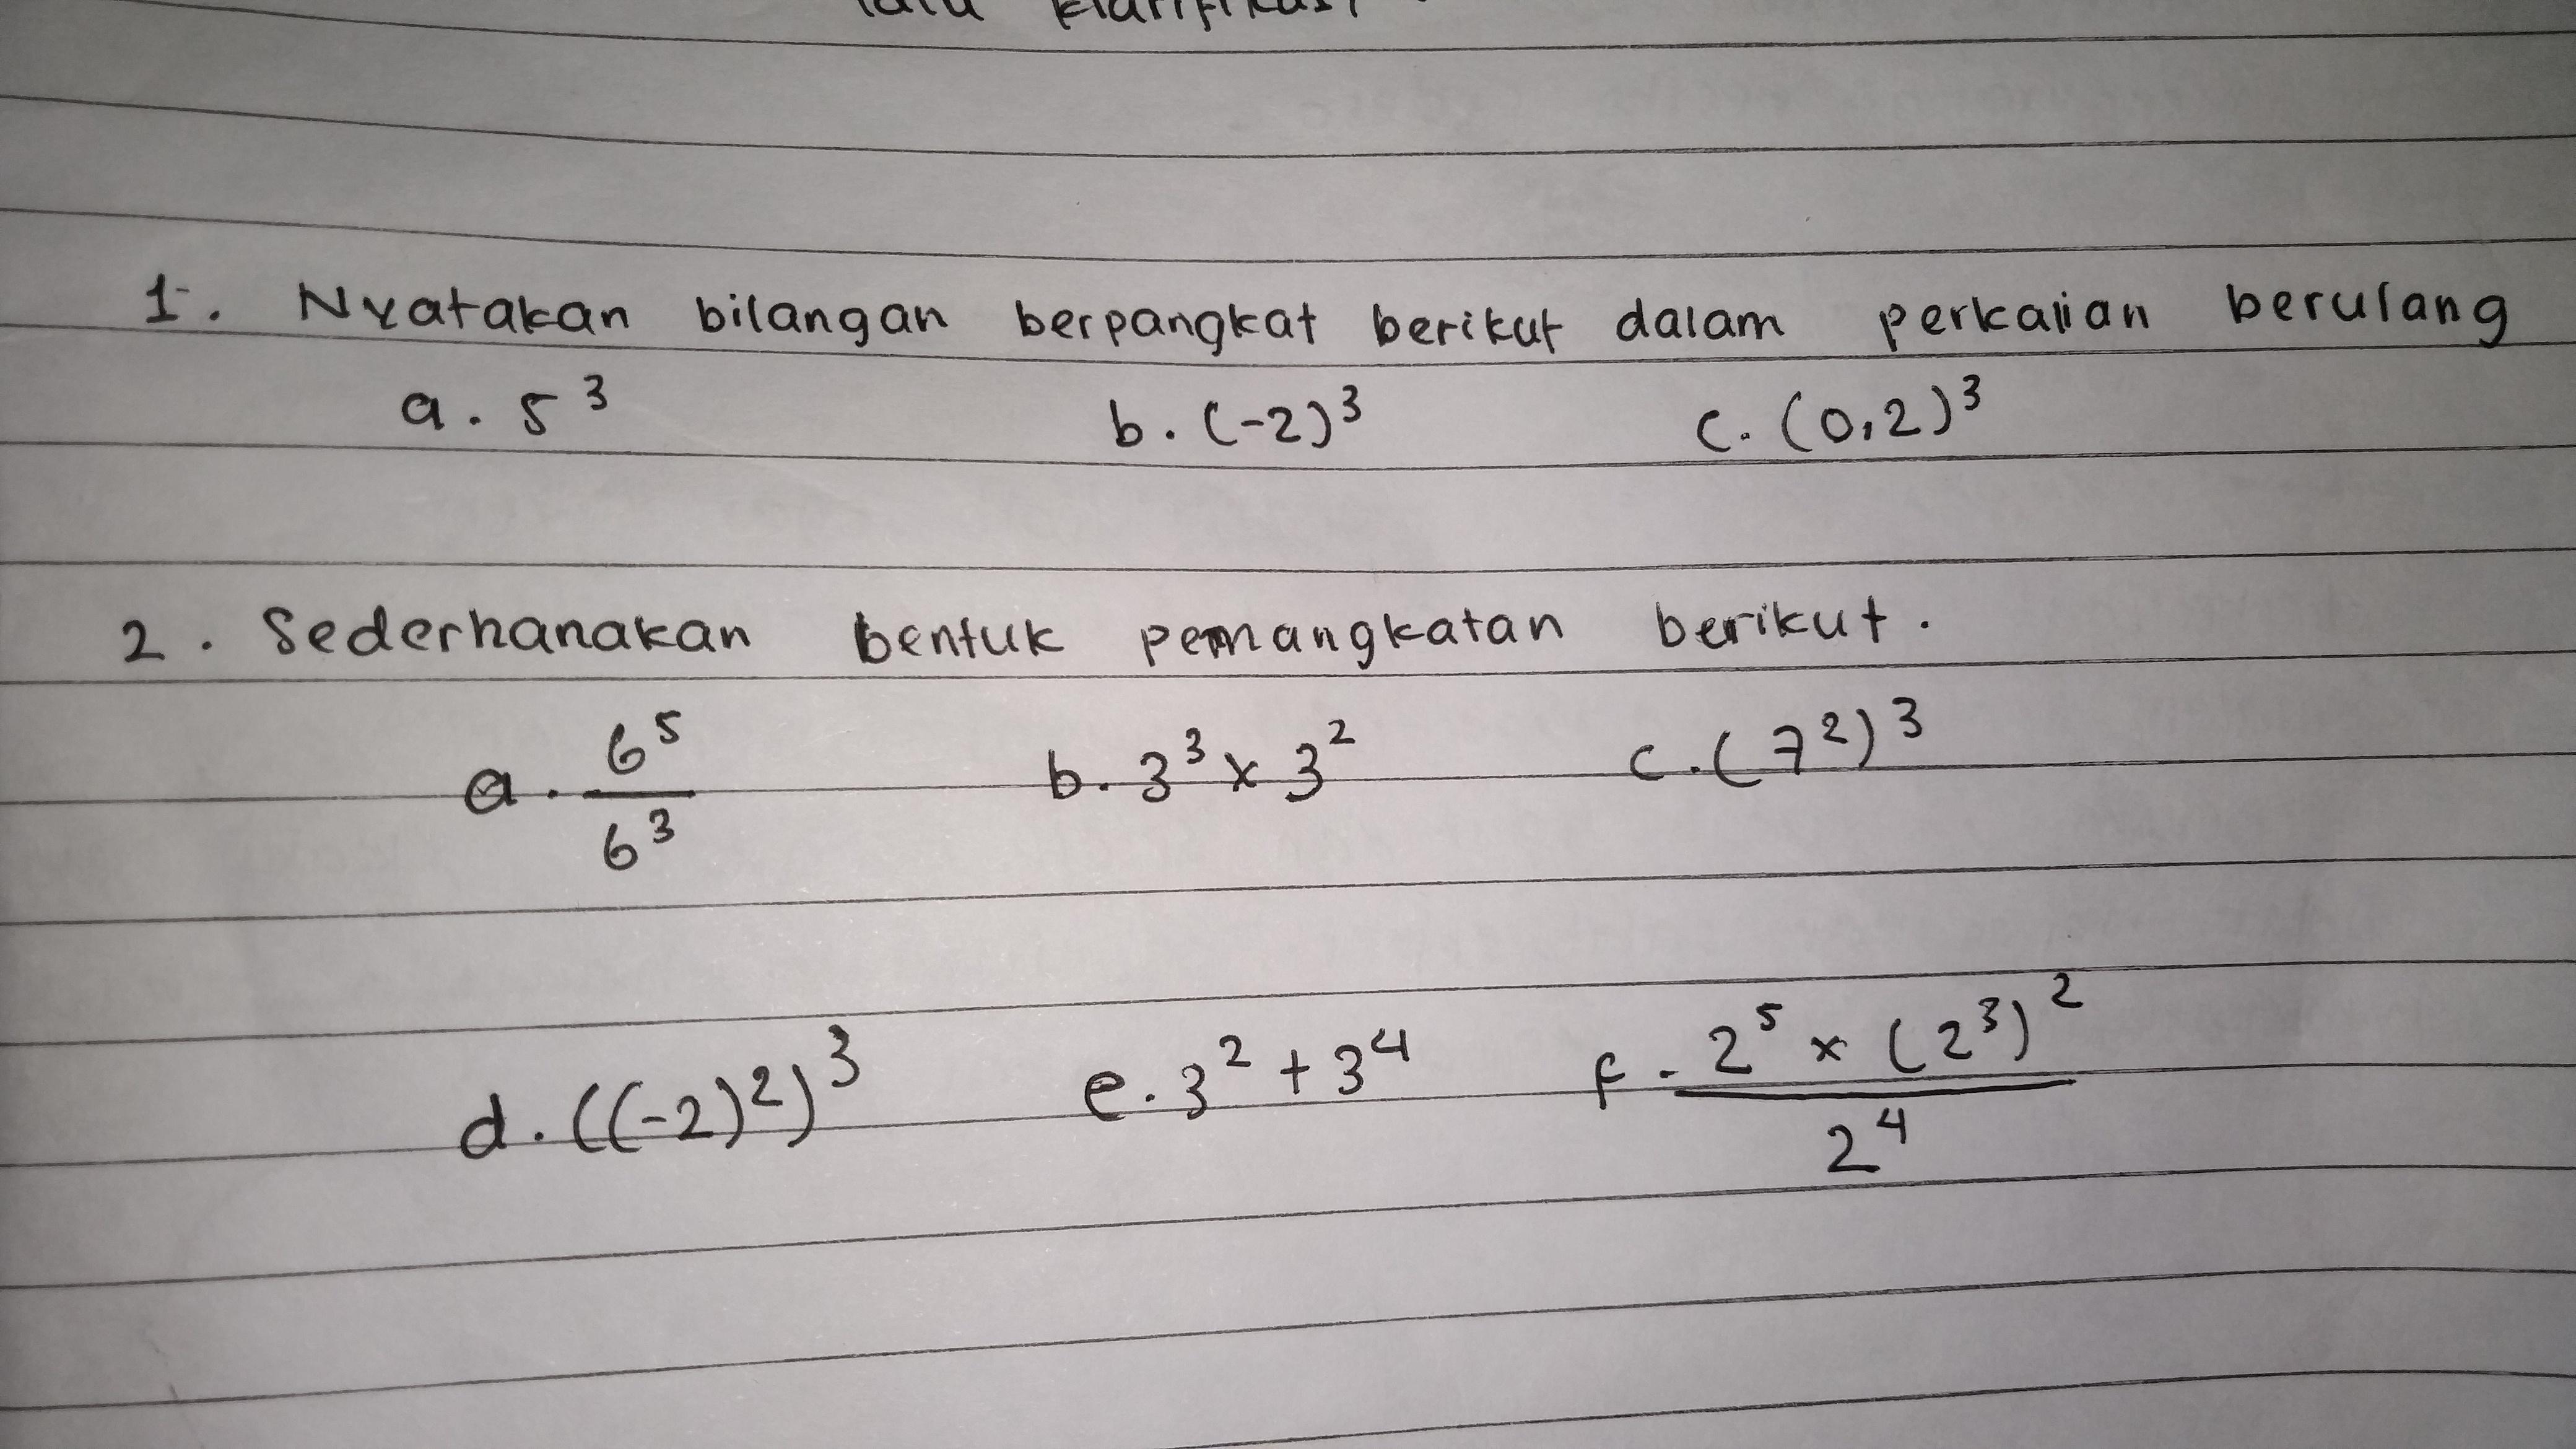 1. Nyatakan bilangan berpangkat berikut dalam perkalian berulang
a. 5³ b. (-2)³ c. (0,2)³
2. Sederhanakan bentuk pemangkatan berikut.
a. 6⁵/6³ b. 3³ x 3² c. (7²)³
d. ((-2)²)³ e. 3² + 3⁴ f. 2⁵ x (2³)²/2⁴